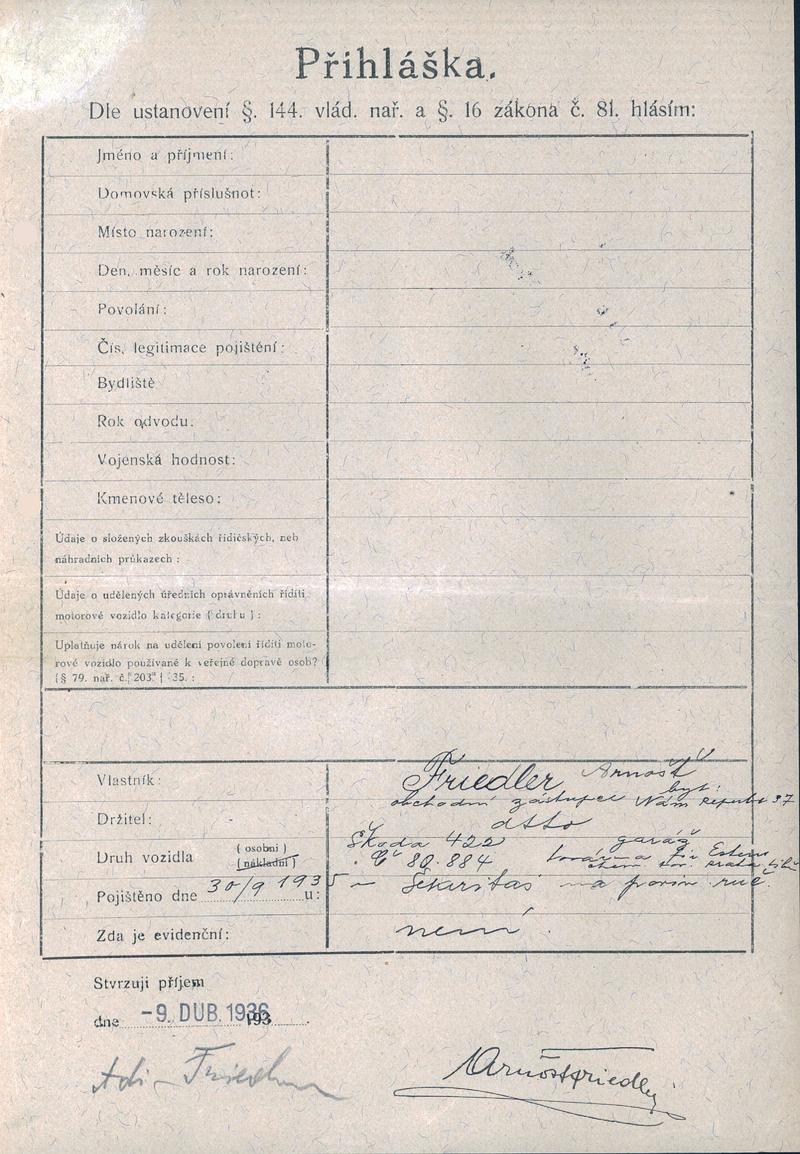 Přihláška.
Dle ustanovení §. 144. vlád. nař. a §. 16 zákona č. 81. hlásím:
Jméno a příjmení:
Domovská příslušnot:
Místo narození:
Den, měsíc a rok narození:
Povolání:
Čís, legitimace pojištění:
Bydliště
Rok odvodu:
Vojenská hodnost:
Kmenové těleso:
Údaje o složených zkouškách řidičských, neb
náhradních průkazech :
Údaje o udělených úředních oprávněních řídíti
motorové vozidlo kategorie ( druhu ) :
Uplatňuje nárok na udělení povolení říditi moto-
rové vozidlo používané k veřejné dopravě osob?
(§ 79. nař. č. 203 | 35. :
Vlastník: Friedler Arnošt
obchodní zástupce byt: Nám Republ 37
Držitel: dtto
Druh vozidla ( osobní ) Škoda 422 garáž
( nákladní ) Č 80.884 továrna
Pojištěno dne 30/9 1935 u: Sekuritas na povin. ruč.
Zda je evidenční: není
Stvrzuji příjem
dne -9. DUB. 1936 193
Friedler
Arnošt Friedler